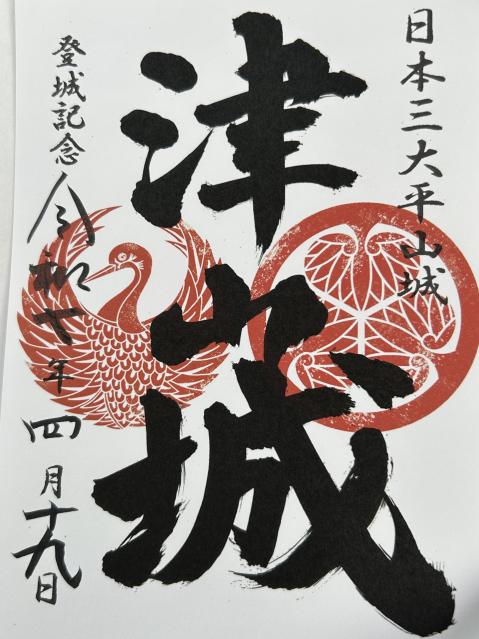 日本三大平山城
津山城
登城記念
令和七年四月十九日